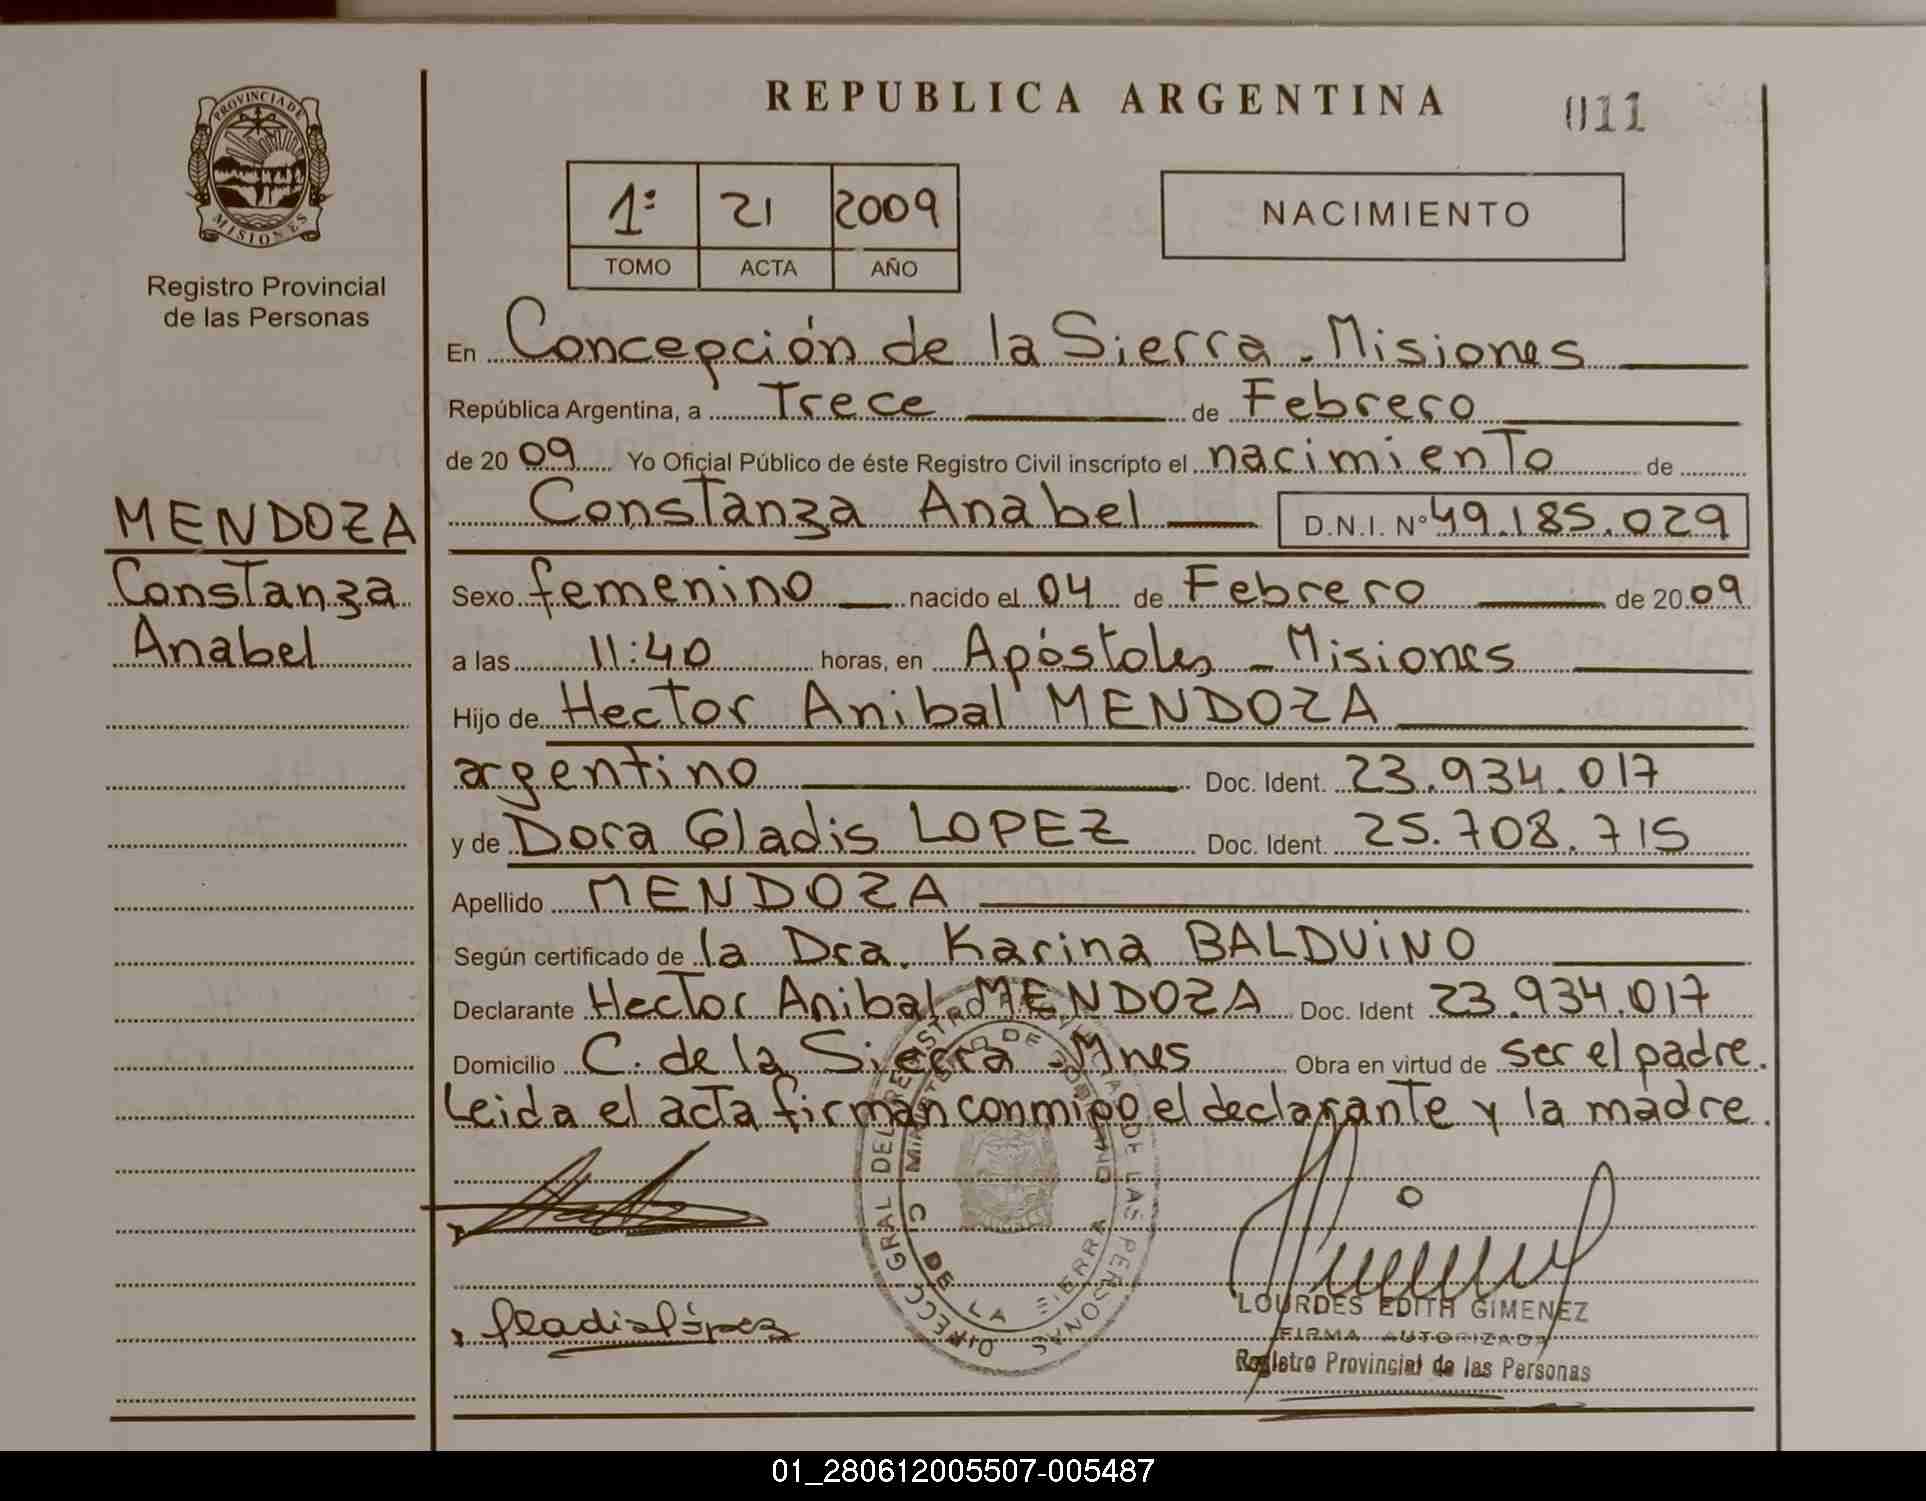 PROVINCIA DE
MISIONES
Registro Provincial
de las Personas
MENDOZA
Constanza
Anabel
REPUBLICA ARGENTINA
011
1º 21 2009
TOMO ACTA AÑO
NACIMIENTO
En Concepción de la Sierra - Misiones
República Argentina, a Trece de Febrero
de 20 09 Yo Oficial Público de éste Registro Civil inscripto el nacimiento de
Constanza Anabel D.N.I. Nº 49.185.029
Sexo femenino nacido el 04 de Febrero de 20 09
a las 11:40 horas, en Apóstoles - Misiones
Hijo de Hector Anibal MENDOZA
argentino Doc. Ident. 23.934.017
y de Dora Gladis LOPEZ Doc. Ident. 25.708.715
Apellido MENDOZA
Según certificado de la Dra. Karina BALDUiNO
Declarante Hector Anibal MENDOZA Doc. Ident 23.934.017
Domicilio C. de la Sierra - Mnes Obra en virtud de ser el padre.
Leida el acta firman conmigo el declarante y la madre.
DIRECC GRAL DEL REGISTRO DE LAS PERSONAS
MINISTERIO DE GOBIERNO
C DE LA SIERRA
Gladis López
LOURDES EDITH GIMENEZ
FIRMA AUTORIZADA
Registro Provincial de las Personas
01_280612005507-005487